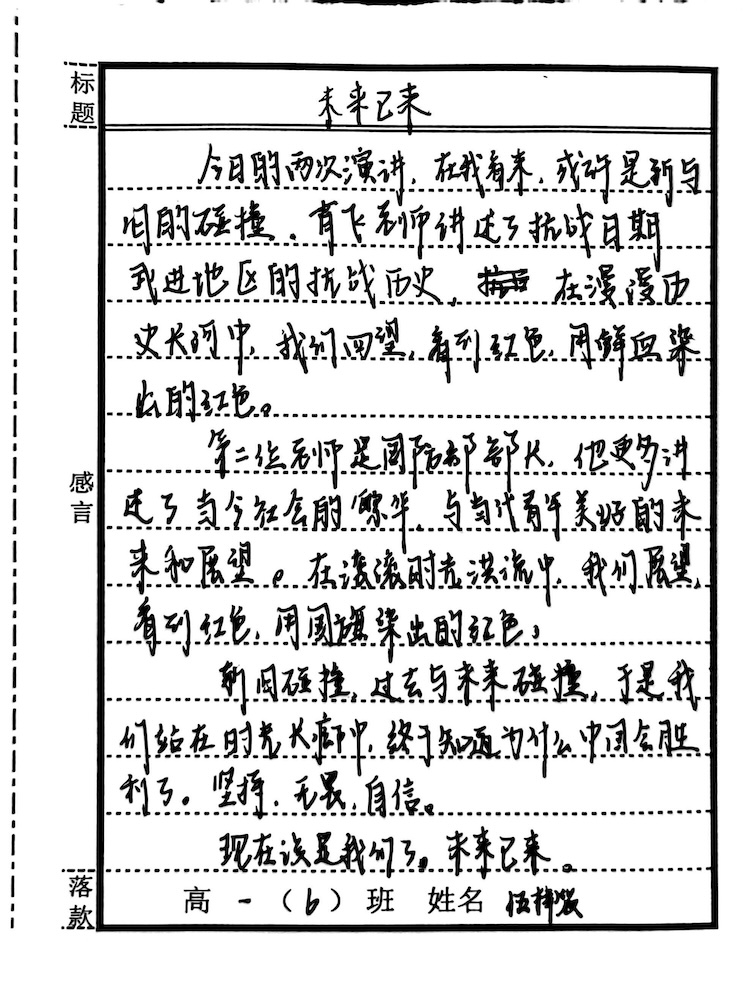 标题
未来已来
今日的两次演讲，在我看来，或许是新与
旧的碰撞。育飞老师讲述了抗战日期
我进地区的抗战历史，在漫漫历
史长河中，我们回望，看到红色，用鲜血染
出的红色。
第二位老师是国防部部长，他更多讲
述了当今社会的繁华，与当代青年美好的未
来和展望。在滚滚时光洪流中，我们展望，
看到红色，用国旗染出的红色，
感言
新旧碰撞，过去与未来碰撞，于是我
们站在时光长廊中，终于知道为什么中国会胜
利了。坚持，无畏，自信。
现在该是我们了，未来已来。
落款
高一（6）班 姓名 伍